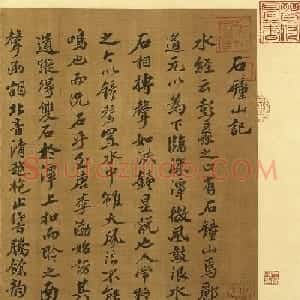 石鐘山記
水經云彭蠡之口有石鐘山焉酈
道元以為下臨深潭微風鼓浪水
石相搏聲如洪鐘是說也人常疑
之今以鐘磬置水中雖大風浪不能
鳴也而況石乎至唐李渤始訪其
遺蹤得雙石於潭上扣而聆之南
聲函胡北音清越枹止響騰餘韻